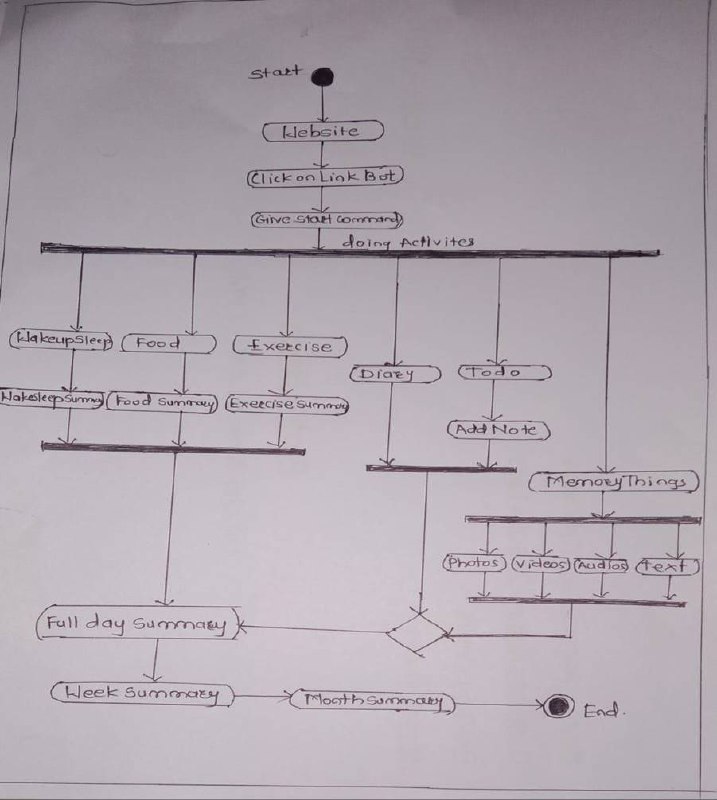 Start
Website
Click on Link Bot
Give Start Command
doing Activites
WakeupSleep
Food
Exercise
Diary
Todo
WakeSleepSumma
Food Summary
ExerciseSummary
Add Note
MemoryThings
Photos
Videos
Audios
Text
Full day Summary
Week Summary
MonthSummary
End.